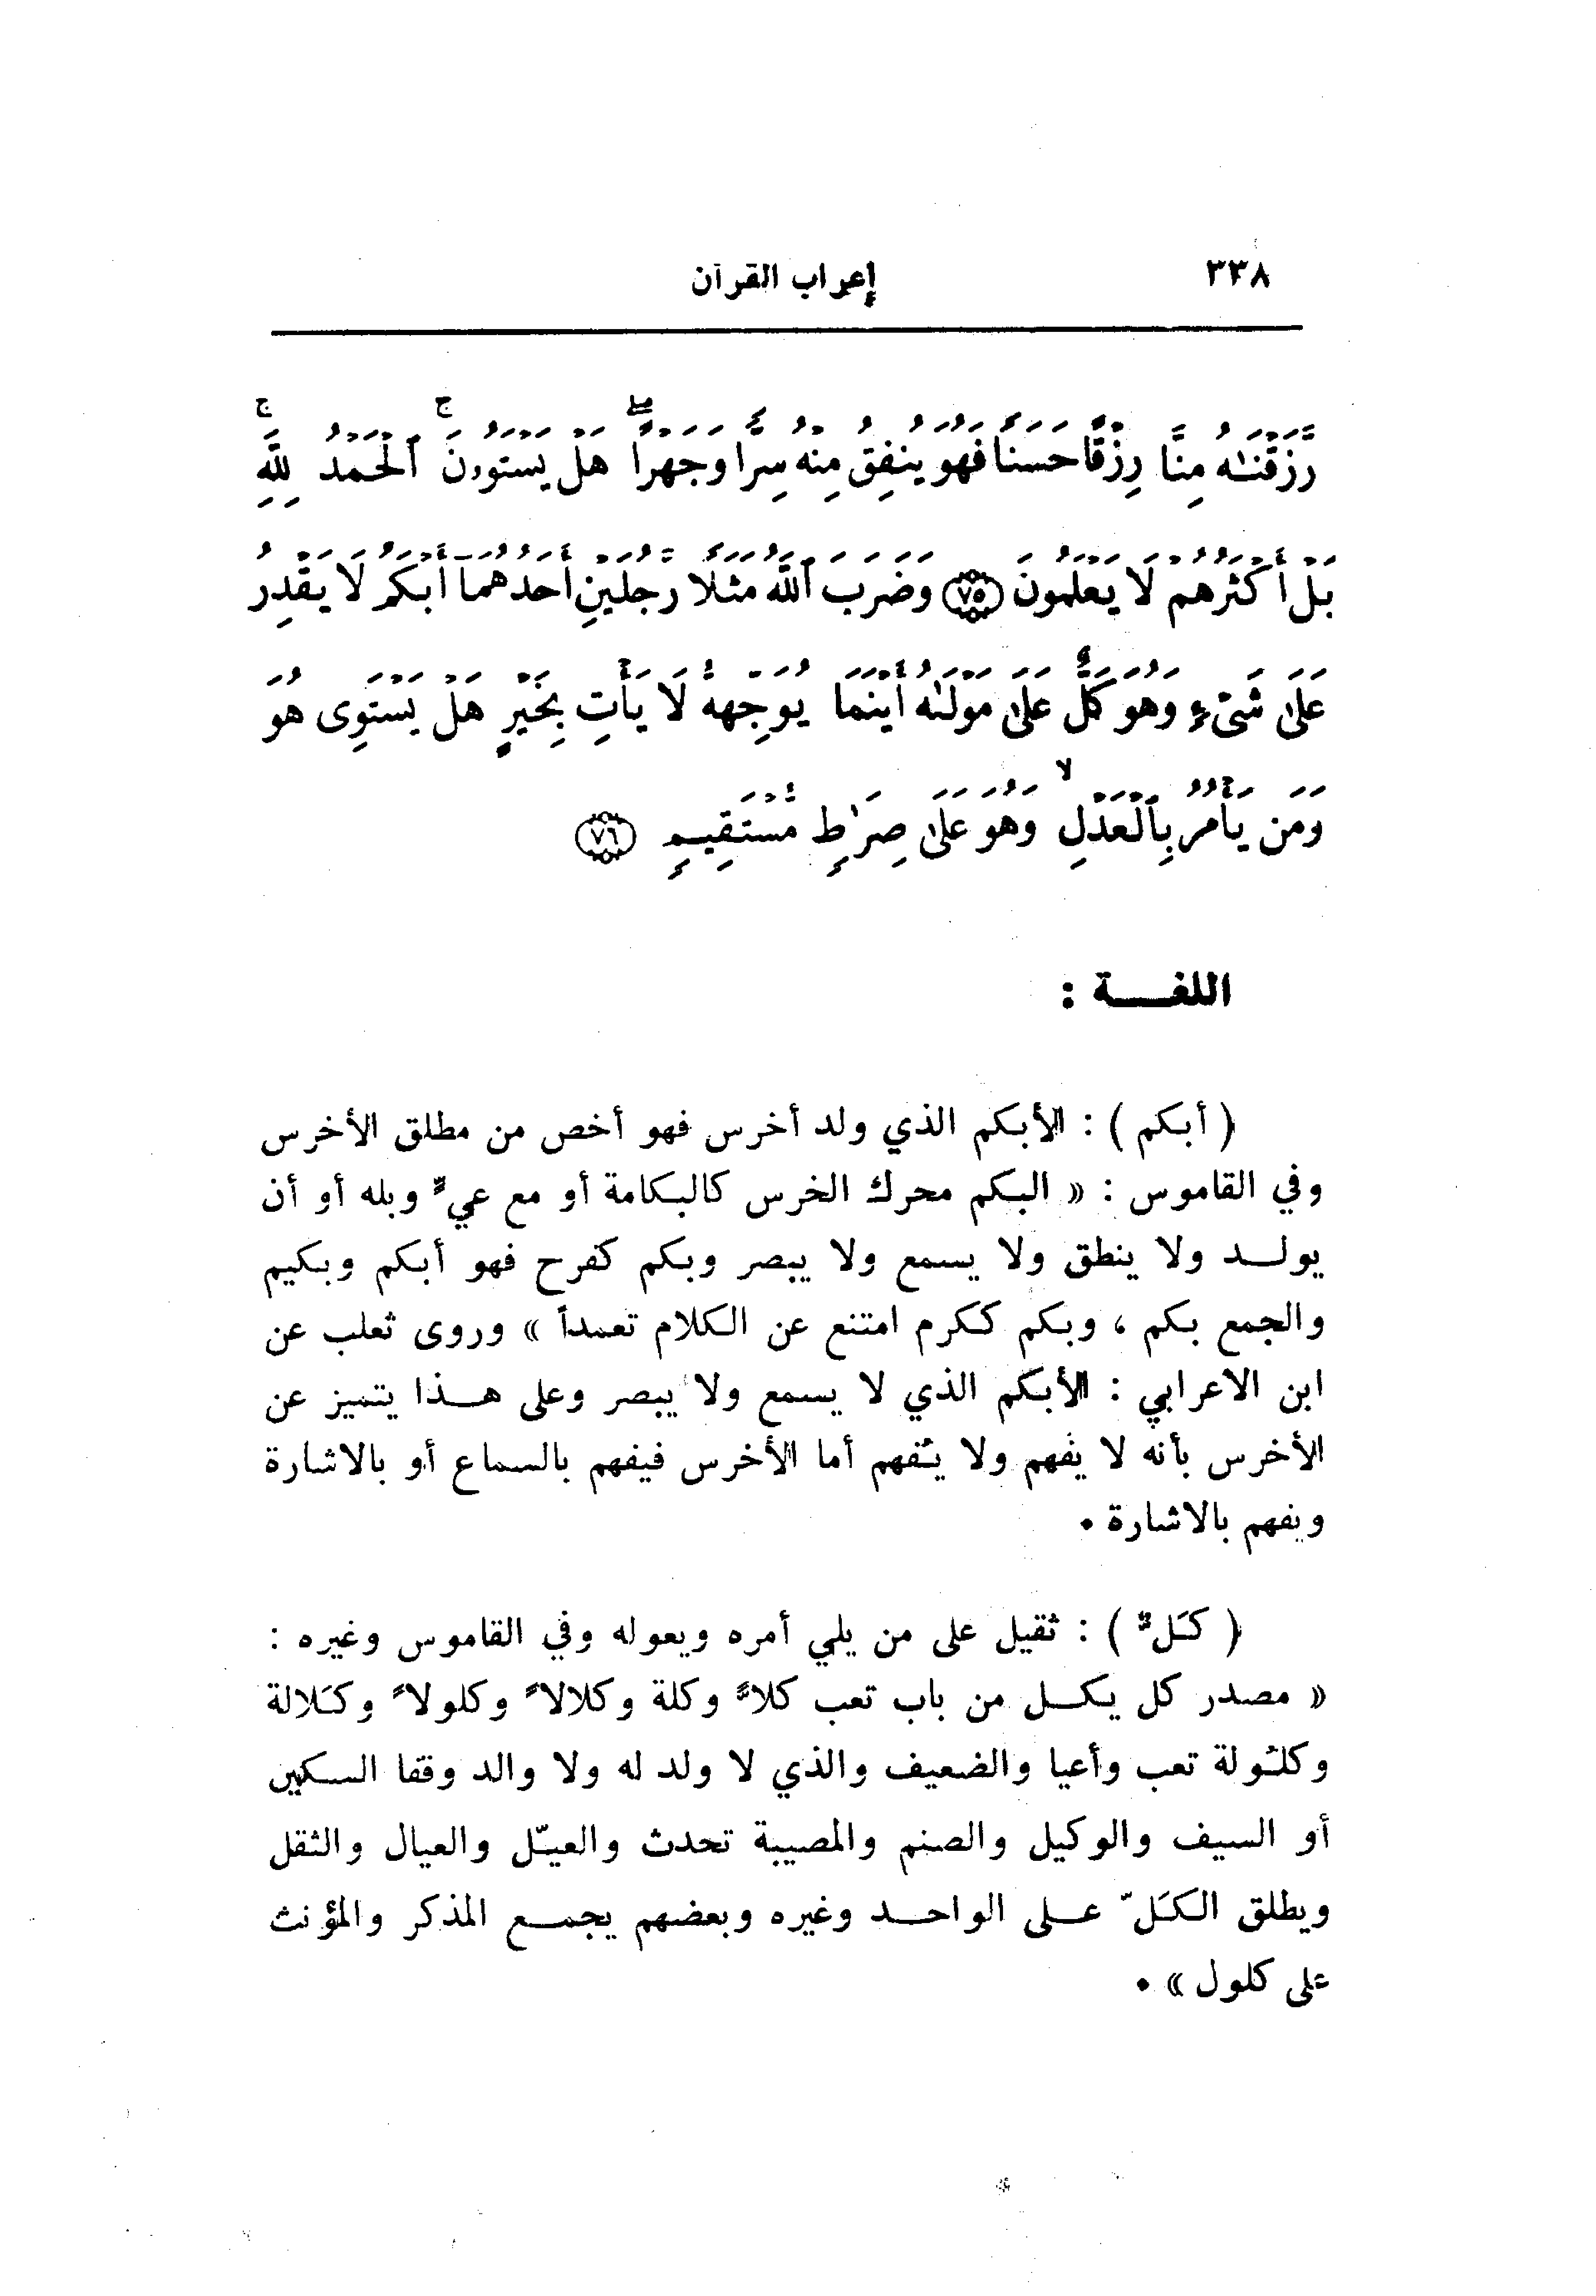 ٣٣٨ إعراب القرآن
رَّزَقْنَٰهُ مِنَّا رِزْقًا حَسَنًا فَهُوَ يُنفِقُ مِنْهُ سِرًّا وَجَهْرًا ۖ هَلْ يَسْتَوُۥنَ ۚ ٱلْحَمْدُ لِلَّهِ ۚ
بَلْ أَكْثَرُهُمْ لَا يَعْلَمُونَ ﴿٧٥﴾ وَضَرَبَ ٱللَّهُ مَثَلًا رَّجُلَيْنِ أَحَدُهُمَآ أَبْكَمُ لَا يَقْدِرُ
عَلَىٰ شَىْءٍ وَهُوَ كَلٌّ عَلَىٰ مَوْلَىٰهُ أَيْنَمَا يُوَجِّههُّ لَا يَأْتِ بِخَيْرٍ هَلْ يَسْتَوِى هُوَ
وَمَن يَأْمُرُ بِٱلْعَدْلِ ۙ وَهُوَ عَلَىٰ صِرَٰطٍ مُّسْتَقِيمٍ ﴿٧٦﴾
اللغـــة :
( أبكم ) : الأبكم الذي ولد أخرس فهو أخص من مطلق الأخرس
وفي القاموس : « البكم محرك الخرس كالبكامة أو مع عيٍّ وبله أو أن
يولــد ولا ينطق ولا يسمع ولا يبصر وبكم كفرح فهو أبكم وبكيم
والجمع بكم ، وبكم ككرم امتنع عن الكلام تعمداً » وروى ثعلب عن
ابن الاعرابي : الأبكم الذي لا يسمع ولا يبصر وعلى هــذا يتميز عن
الأخرس بأنه لا يَفهم ولا يُفهم أما الأخرس فيفهم بالسماع أو بالاشارة
ويفهم بالاشارة .
( كَلٌّ ) : ثقيل على من يلي أمره ويعوله وفي القاموس وغيره :
« مصدر كل يكــل من باب تعب كلاًّ وكلة وكلالاً وكلولاً وكَلالة
وكلُولة تعب وأعيا والضعيف والذي لا ولد له ولا والد وقفا السكين
أو السيف والوكيل والصنم والمصيبة تحدث والعيّل والعيال والثقل
ويطلق الكَلّ علــى الواحــد وغيره وبعضهم يجمــع المذكر والمؤنث
على كلول » .